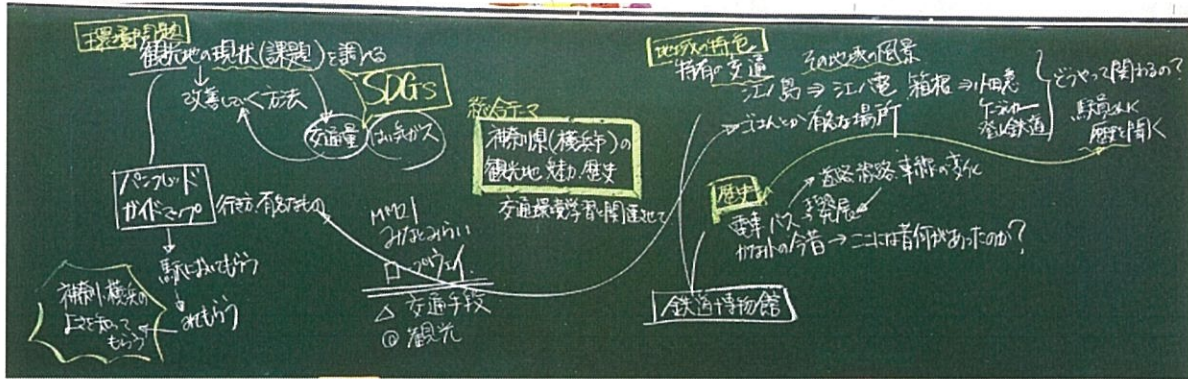 環境問題
観光地の現状(課題)を調べる
改善していく方法
SDGs
交通量
はい気ガス
パンフレット
ガイドマップ
行き方、有名なもの
駅においてもらう
みてもらう
神奈川、横浜の
よさを知って
もらう
総合テーマ
神奈川県(横浜市)の
観光地、魅力、歴史
交通環境学習と関連させて
MM21
みなとみらい
ロープウェイ
△ 交通手段
◎ 観光
地域の特色
特有の交通
その地域の風景
江ノ島⇒江ノ電 箱根⇒小田急
ケーブルカー
登山鉄道
どうやって関わるの?
駅員さんに
歴史を聞く
ごはんとか有名な場所
歴史
道路、線路、車両の変化
電車、バス
発展
の今昔→ここには昔何があったのか?
鉄道博物館